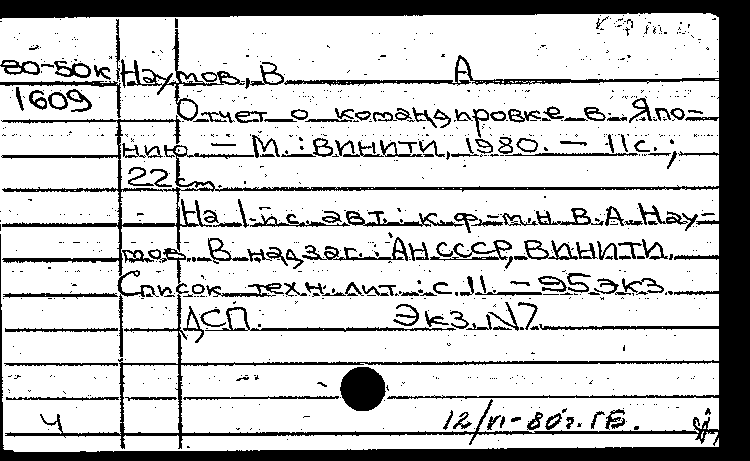 к ф. м. н.
80-50к Наумов, В А
1609
Отчет о командировке в Япо-
нию - М. : ВИНИТИ, 1980. - 11с. ;
22см.
На 1-й с. авт. : к. ф.-м.н В. А. Нау-
мов. В надзаг. : АН СССР, ВИНИТИ.
Список техн. лит. : с 11. - 95 экз
ДСП. Экз. N7
4 12/VI-80г. ГБ.